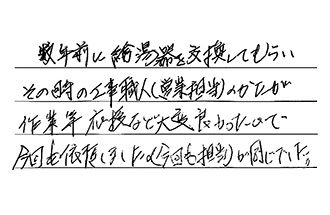 数年前に給湯器を交換してもらい
その時の工事職人(営業担当)のかたが
作業等 応接など大変良かったので
今回も依頼しました(今回も担当)が同じでした。